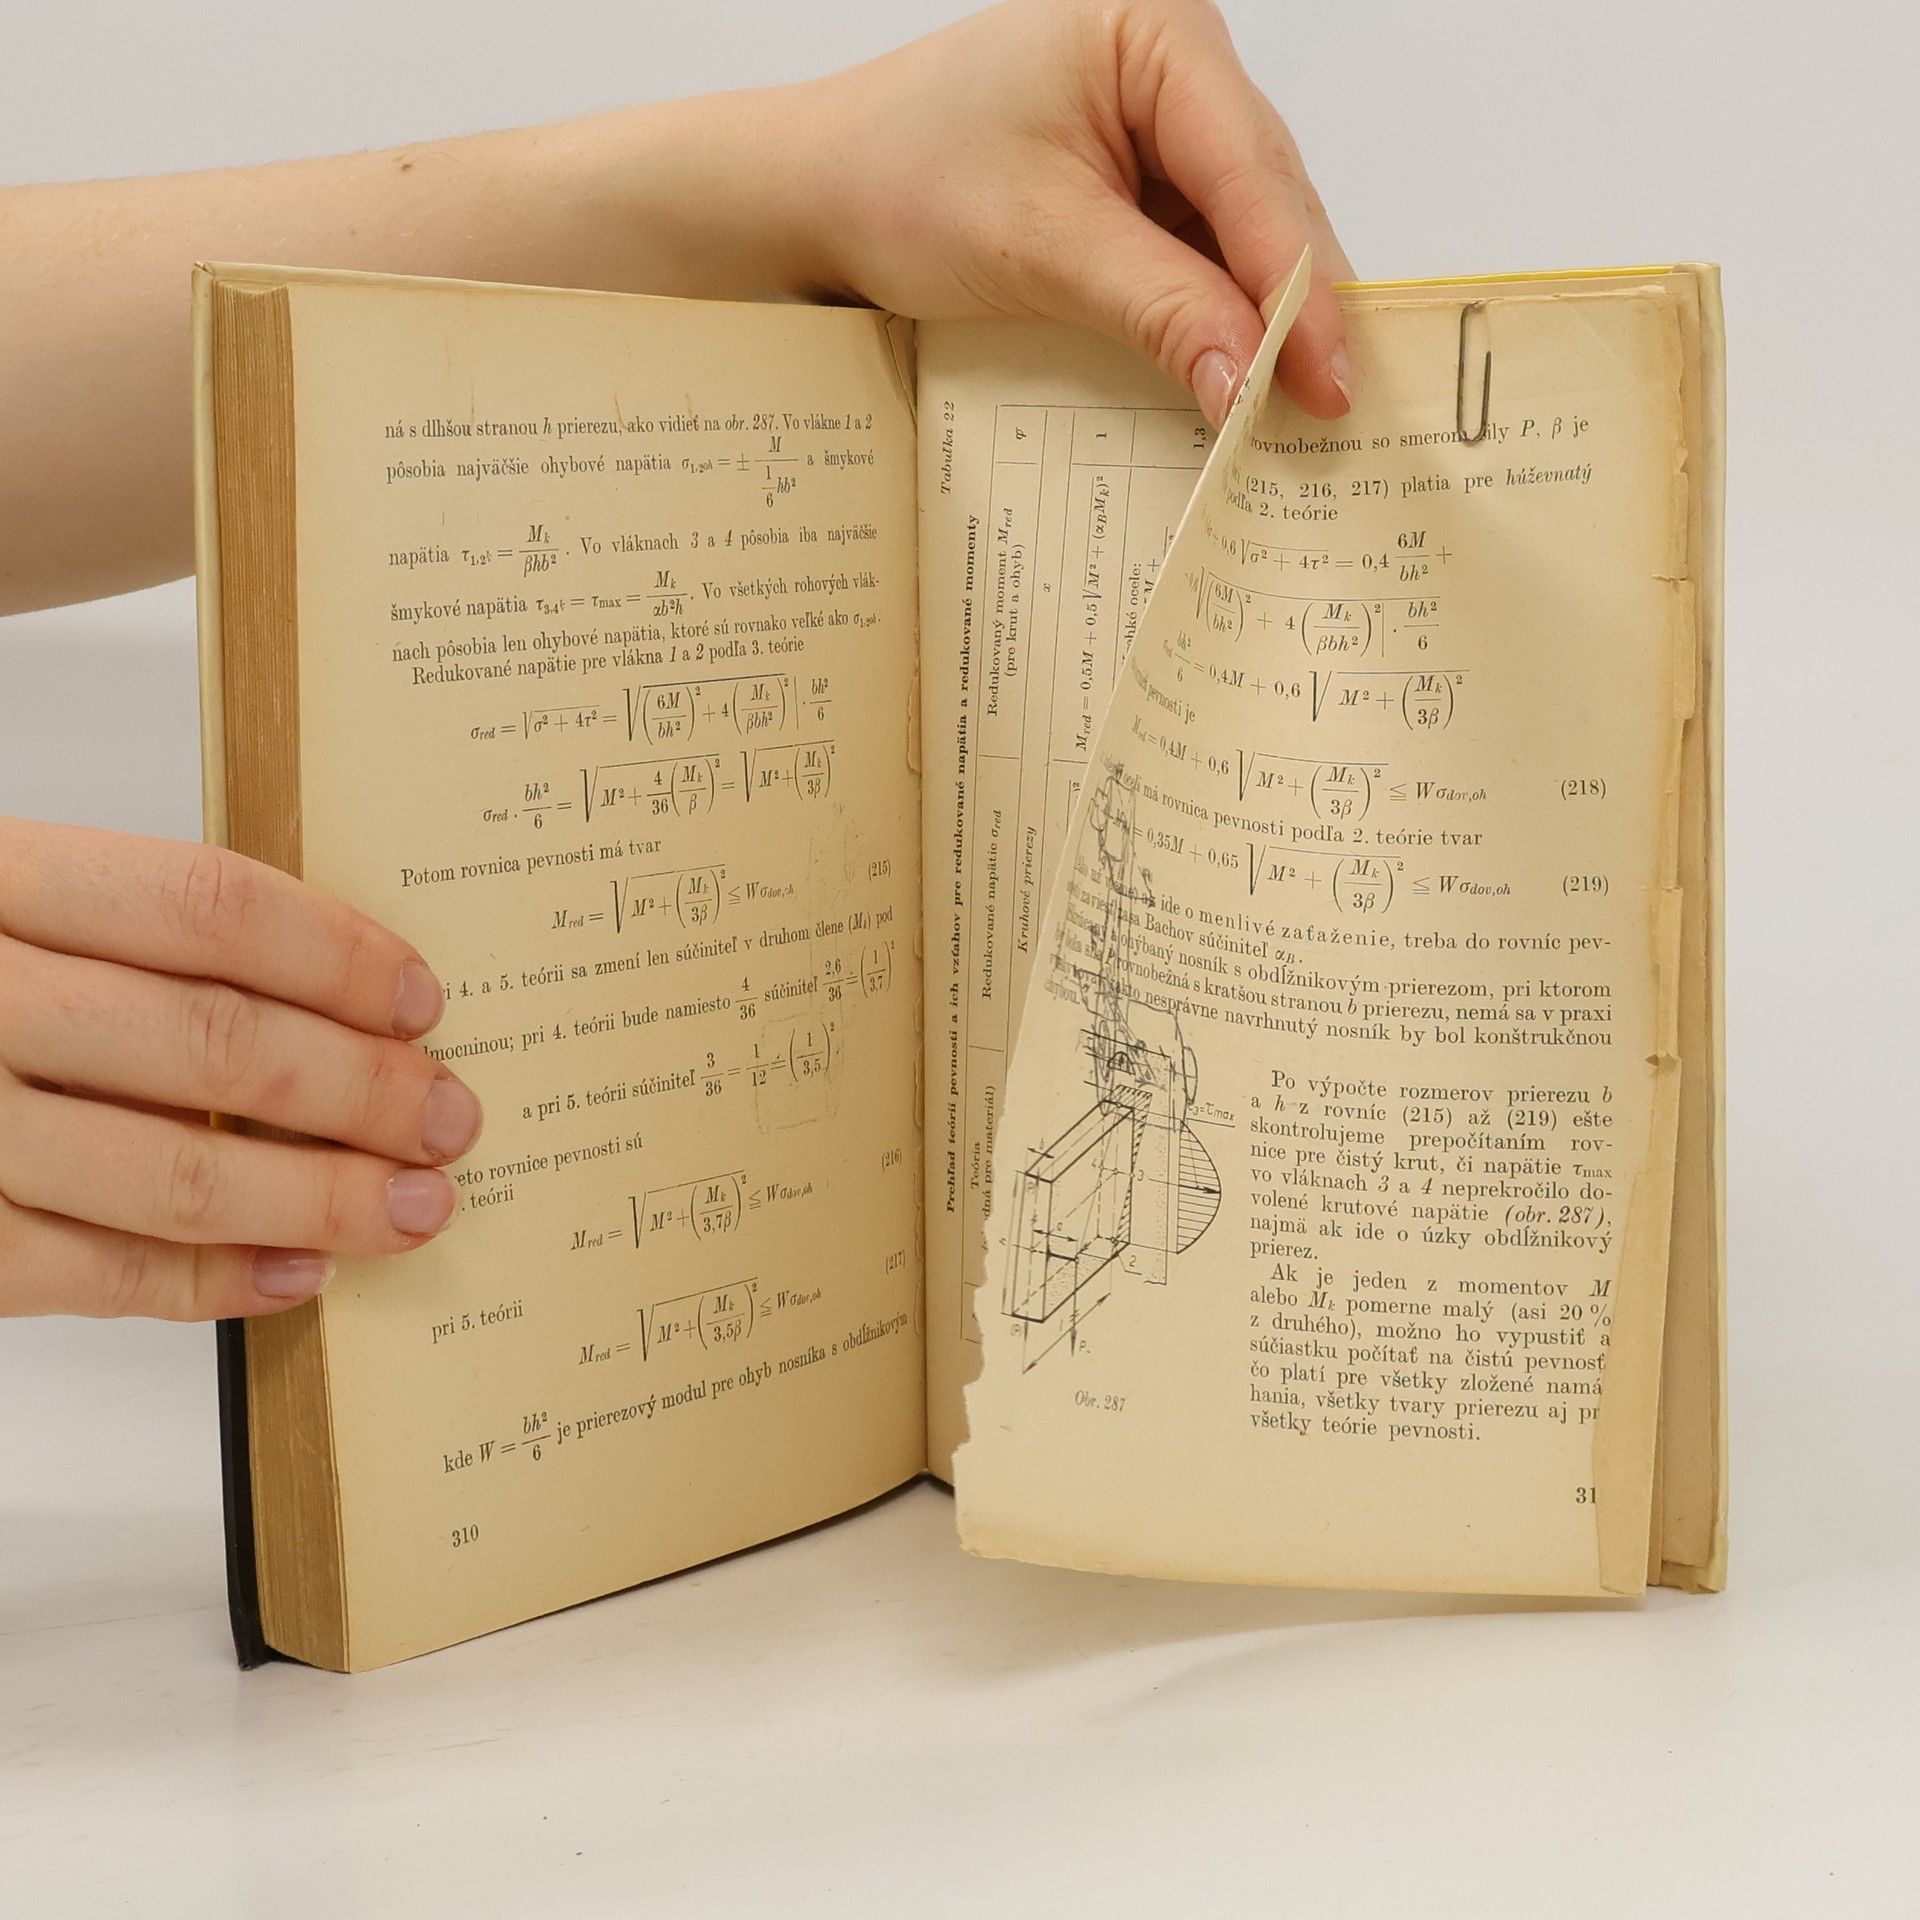 ná s dlhšou stranou h prierezu, ako vidieť na obr. 287. Vo vlákne 1 a 2
pôsobia najväčšie ohybové napätia σ1,2oh = ± M / (1/6 hb²) a šmykové
napätia τ1,2k = Mk / βhb² . Vo vláknach 3 a 4 pôsobia iba najväčšie
šmykové napätia τ3,4k = τmax = Mk / αb²h . Vo všetkých rohových vlák-
nach pôsobia len ohybové napätia, ktoré sú rovnako veľké ako σ1,2oh.
Redukované napätie pre vlákna 1 a 2 podľa 3. teórie
σred = √(σ² + 4τ²) = √((6M/bh²)² + 4(Mk/βbh²)²) | · bh²/6
σred . bh²/6 = √(M² + 4/36 (Mk/β)²) = √(M² + (Mk/3β)²)
Potom rovnica pevnosti má tvar
Mred = √(M² + (Mk/3β)²) ≦ Wσdov,oh (215)
4. a 5. teórii sa zmení len súčiniteľ v druhom člene (Mk) pod
mocninou; pri 4. teórii bude namiesto 4/36 súčiniteľ 2,6/36 ≐ (1/3,7)²
a pri 5. teórii súčiniteľ 3/36 = 1/12 ≐ (1/3,5)².
rovnice pevnosti sú
teórii
Mred = √(M² + (Mk/3,7β)²) ≦ Wσdov,oh (216)
pri 5. teórii
Mred = √(M² + (Mk/3,5β)²) ≦ Wσdov,oh (217)
kde W = bh²/6 je prierezový modul pre ohyb nosníka s obdĺžnikovým
310
Tabuľka 22
Prehľad teórií pevnosti a ich vzťahov pre redukované napätia a redukované momenty
Teória
pre materiál)
Redukované napätie σred
Redukovaný moment Mred
(pre krut a ohyb)
Ψ
Kruhové prierezy
x
Mred = 0,5M + 0,5√(M² + (αBMk)²)
1
ocele:
1,3
rovnobežnou so smerom sily P, β je
(215, 216, 217) platia pre húževnatý
podľa 2. teórie
0,6 √(σ² + 4τ²) = 0,4 6M/bh² +
√((6M/bh²)² + 4(Mk/βbh²)²) | · bh²/6
bh²/6 = 0,4M + 0,6 √(M² + (Mk/3β)²)
pevnosti je
Mred = 0,4M + 0,6 √(M² + (Mk/3β)²) ≦ Wσdov,oh (218)
má rovnica pevnosti podľa 2. teórie tvar
= 0,35M + 0,65 √(M² + (Mk/3β)²) ≦ Wσdov,oh (219)
ak ide o menlivé zaťaženie, treba do rovníc pev-
zasa Bachov súčiniteľ αB.
a ohýbaný nosník s obdĺžnikovým prierezom, pri ktorom
sila P rovnobežná s kratšou stranou b prierezu, nemá sa v praxi
takto nesprávne navrhnutý nosník by bol konštrukčnou
chybou.
τ3=τmax
3
2
Obr. 287
Po výpočte rozmerov prierezu b
a h z rovníc (215) až (219) ešte
skontrolujeme prepočítaním rov-
nice pre čistý krut, či napätie τmax
vo vláknach 3 a 4 neprekročilo do-
volené krutové napätie (obr. 287),
najmä ak ide o úzky obdĺžnikový
prierez.
Ak je jeden z momentov M
alebo Mk pomerne malý (asi 20 %
z druhého), možno ho vypustiť a
súčiastku počítať na čistú pevnosť
čo platí pre všetky zložené namá
hania, všetky tvary prierezu aj pr
všetky teórie pevnosti.
31